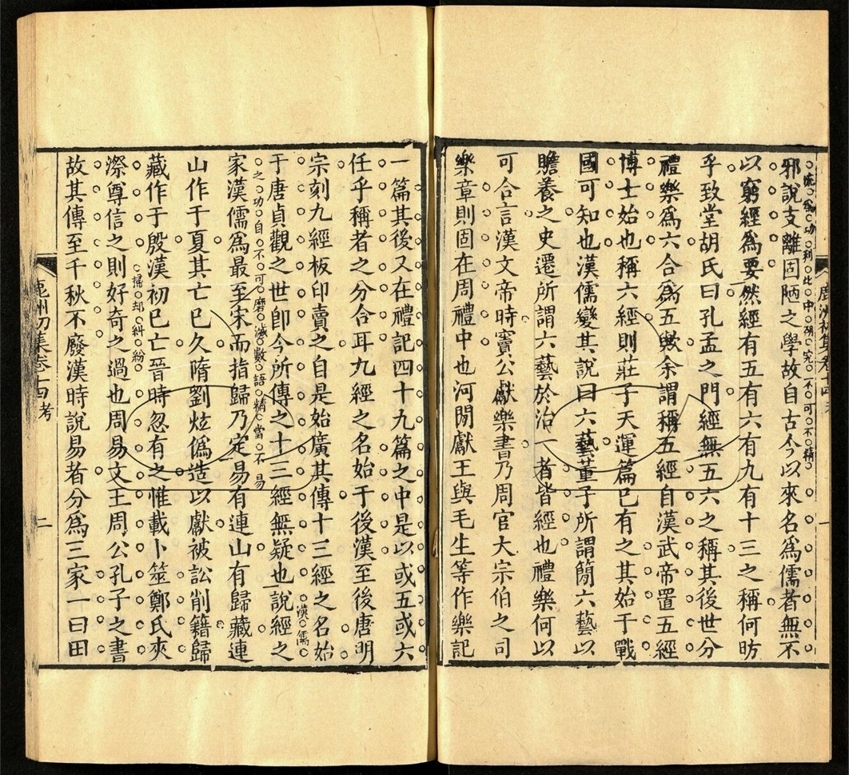 流爲功利此中硏究不可不精
邪說支離固陋之學故自古今以來名爲儒者無不
以窮經爲要然經有五有六有九有十三之稱何昉
乎致堂胡氏曰孔孟之門經無五六之稱其後世分
禮樂爲六合爲五歟余謂稱五經自漢武帝置五經
博士始也稱六經則莊子天運篇已有之其始于戰
國可知也漢儒變其說曰六藝董子所謂簡六藝以
贍養之史遷所謂六藝於治一者皆經也禮樂何以
可合言漢文帝時竇公獻樂書乃周官大宗伯之司
樂章則固在周禮中也河間獻王與毛生等作樂記
一篇其後又在禮記四十九篇之中是以或五或六
任乎稱者之分合耳九經之名始于後漢至後唐明
宗刻九經板印賣之自是始廣其傳十三經之名始
漢儒
于唐貞觀之世卽今所傳之十三經無疑也說經之
之功自不可磨滅數語精當不易
家漢儒爲最至宋而指歸乃定易有連山有歸藏連
山作于夏其亡已久隋劉炫僞造以獻被訟削籍歸
藏作于殷漢初已亡晉時忽有之惟載卜筮鄭氏夾
掃却糾紛
漈尊信之則好奇之過也周易文王周公孔子之書
故其傳至千秋不廢漢時說易者分爲三家一曰田
鹿洲初集卷十四 考 二